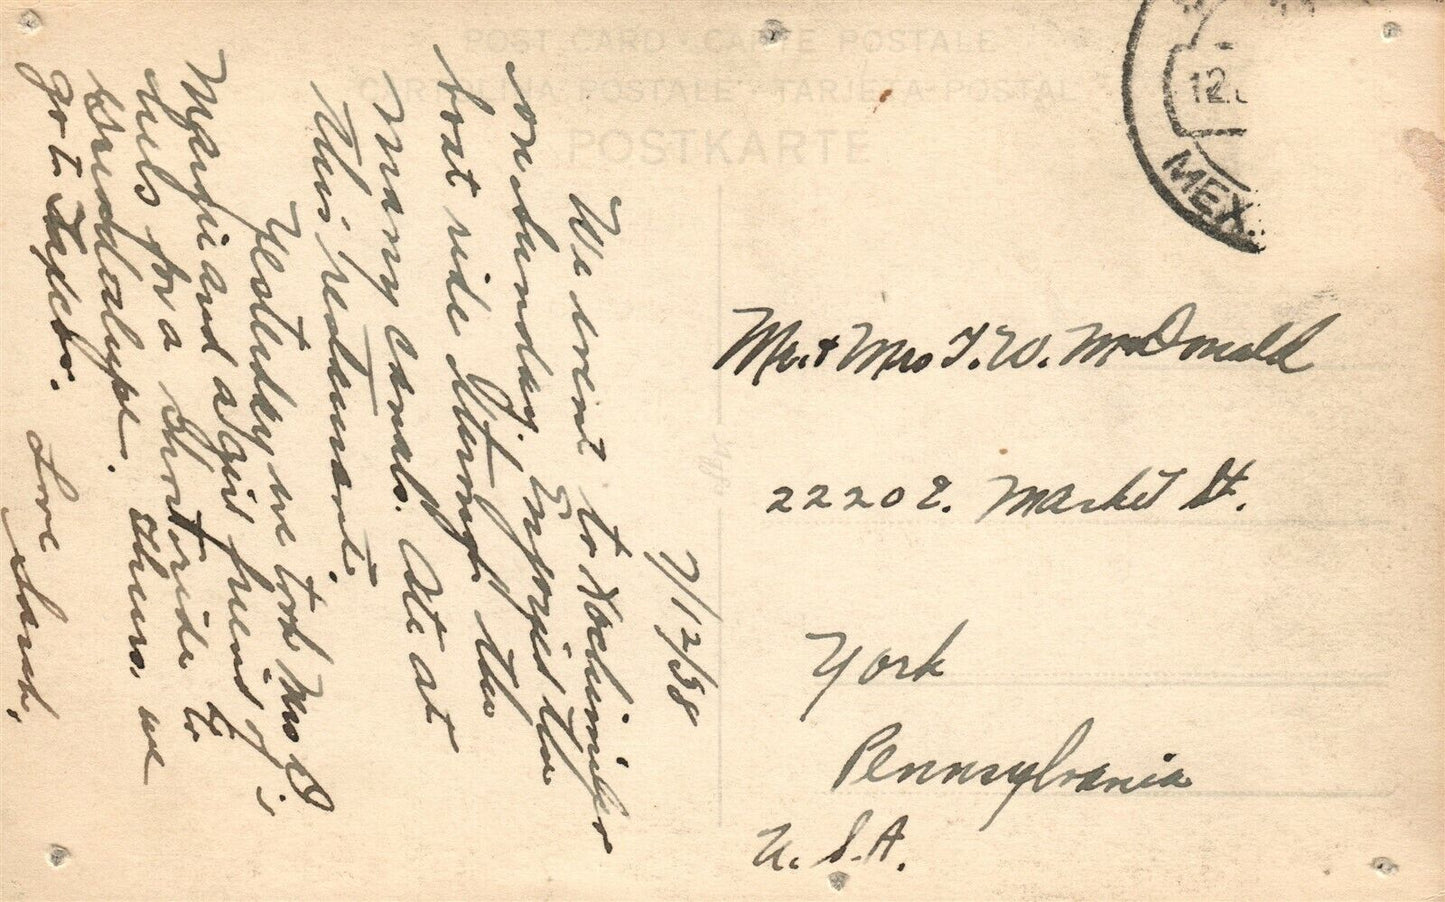 POST CARD CARTE POSTALE
CARTOLINA POSTALE TARJETA POSTAL
POSTKARTE
12.
MEX.
7/12/38
We went to Xochimilco
on Sunday. Enjoyed the
boat ride through the
many canals. Ate at
this restaurant.
Yesterday we took Mrs G
Margie and a girl friend of
hers for a short ride to
Guadalupe. Thurs. we
go to Taxco.
Love Sarah.
Mr. & Mrs T. W. McDonald
2220 E. Market St.
York
Pennsylvania
U. S. A.